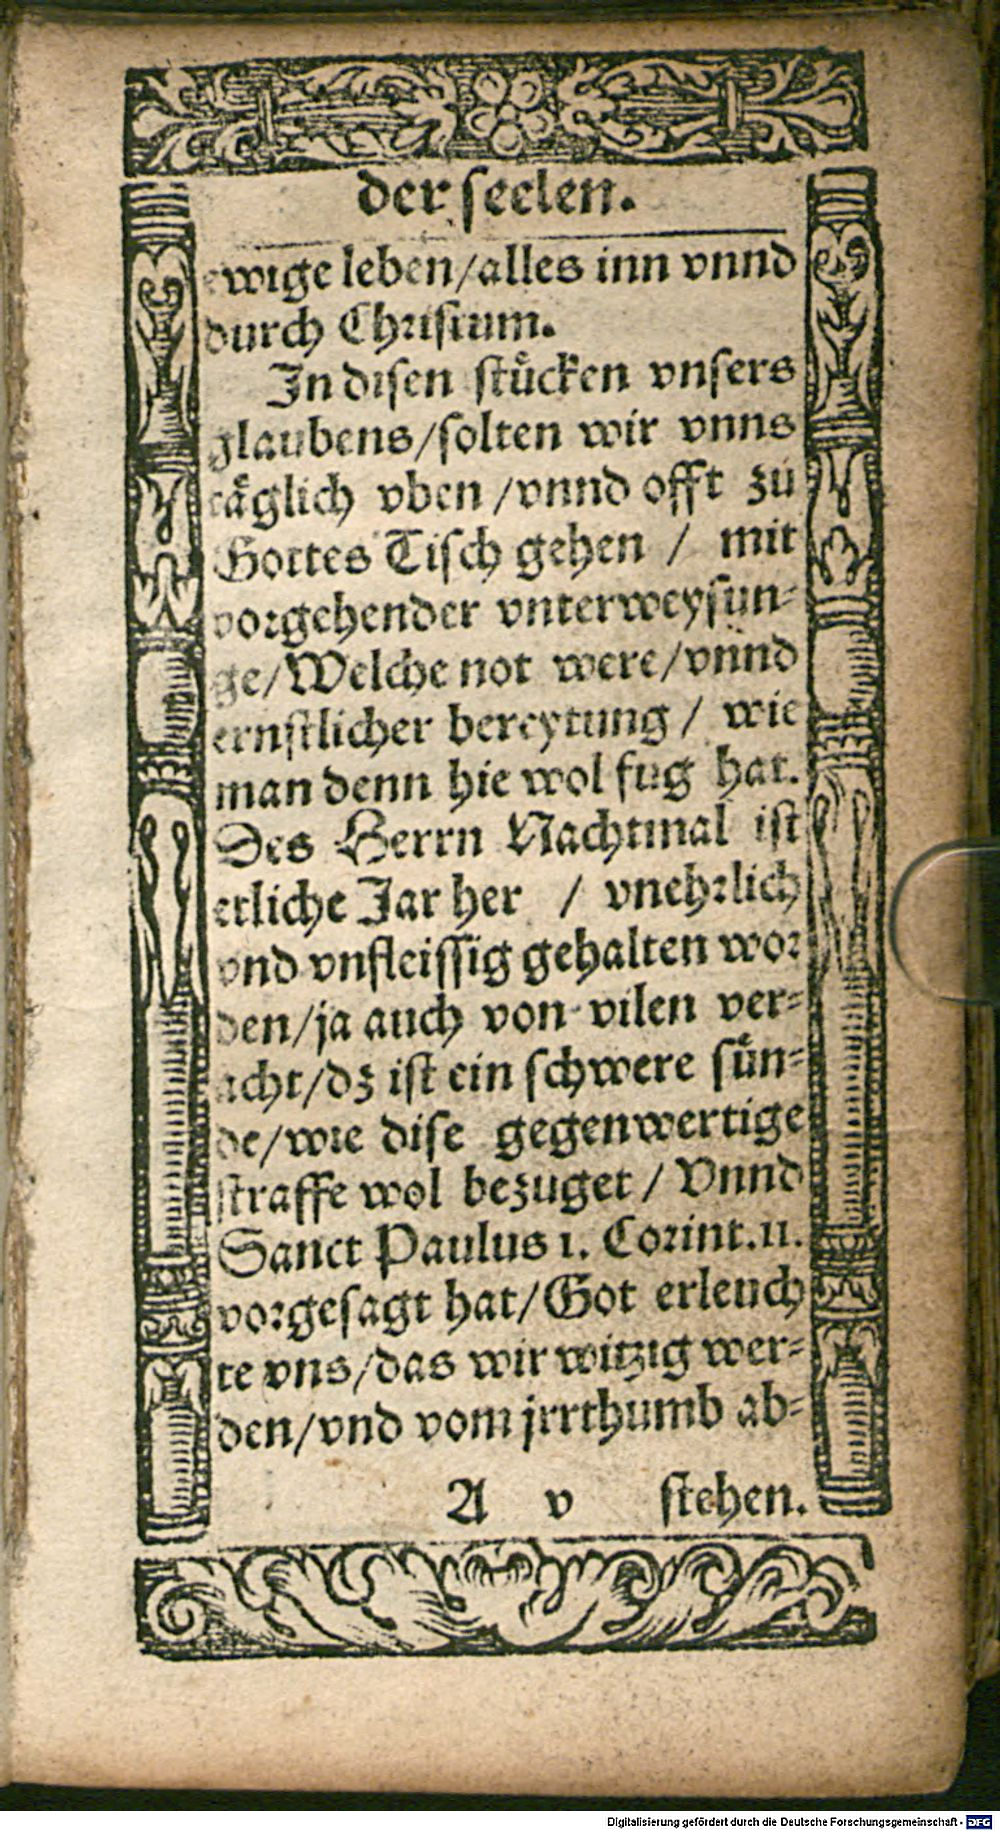 der seelen.
ewige leben/alles inn vnnd
durch Christum.
In disen stuͤcken vnsers
glaubens/solten wir vnns
taͤglich vben /vnnd offt zuͦ
Gottes Tisch gehen / mit
vorgehender vnterweysun-
ge/Welche not were/vnnd
ernstlicher bereytung / wie
man denn hie wol fug hat.
Des Herrn Nachtmal ist
etliche Jar her / vnehrlich
vnd vnfleissig gehalten wor
den/ja auch von vilen ver-
acht/dz ist ein schwere suͤn-
de/wie dise gegenwertige
straffe wol bezuget / Vnnd
Sanct Paulus 1. Corint.11.
vorgesagt hat/Got erleuch
te vns/das wir witzig wer-
den/vnd vom jrrthumb ab-
A v stehen.
Digitalisierung gefördert durch die Deutsche Forschungsgemeinschaft - DFG